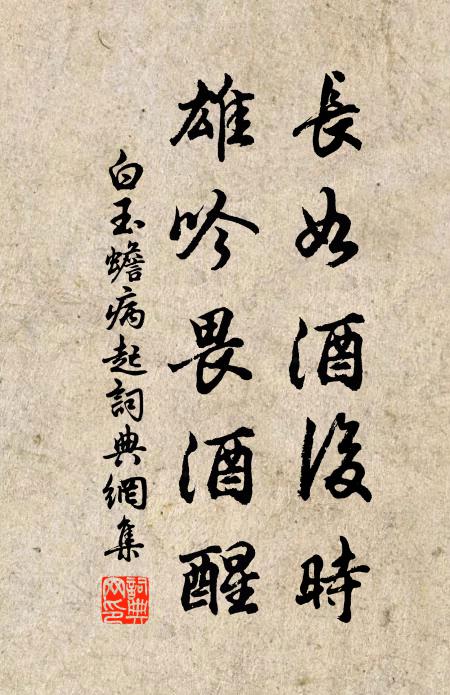 長如酒後時
雄吟畏酒醒
白玉蟾病起詞典網集
詞典網印